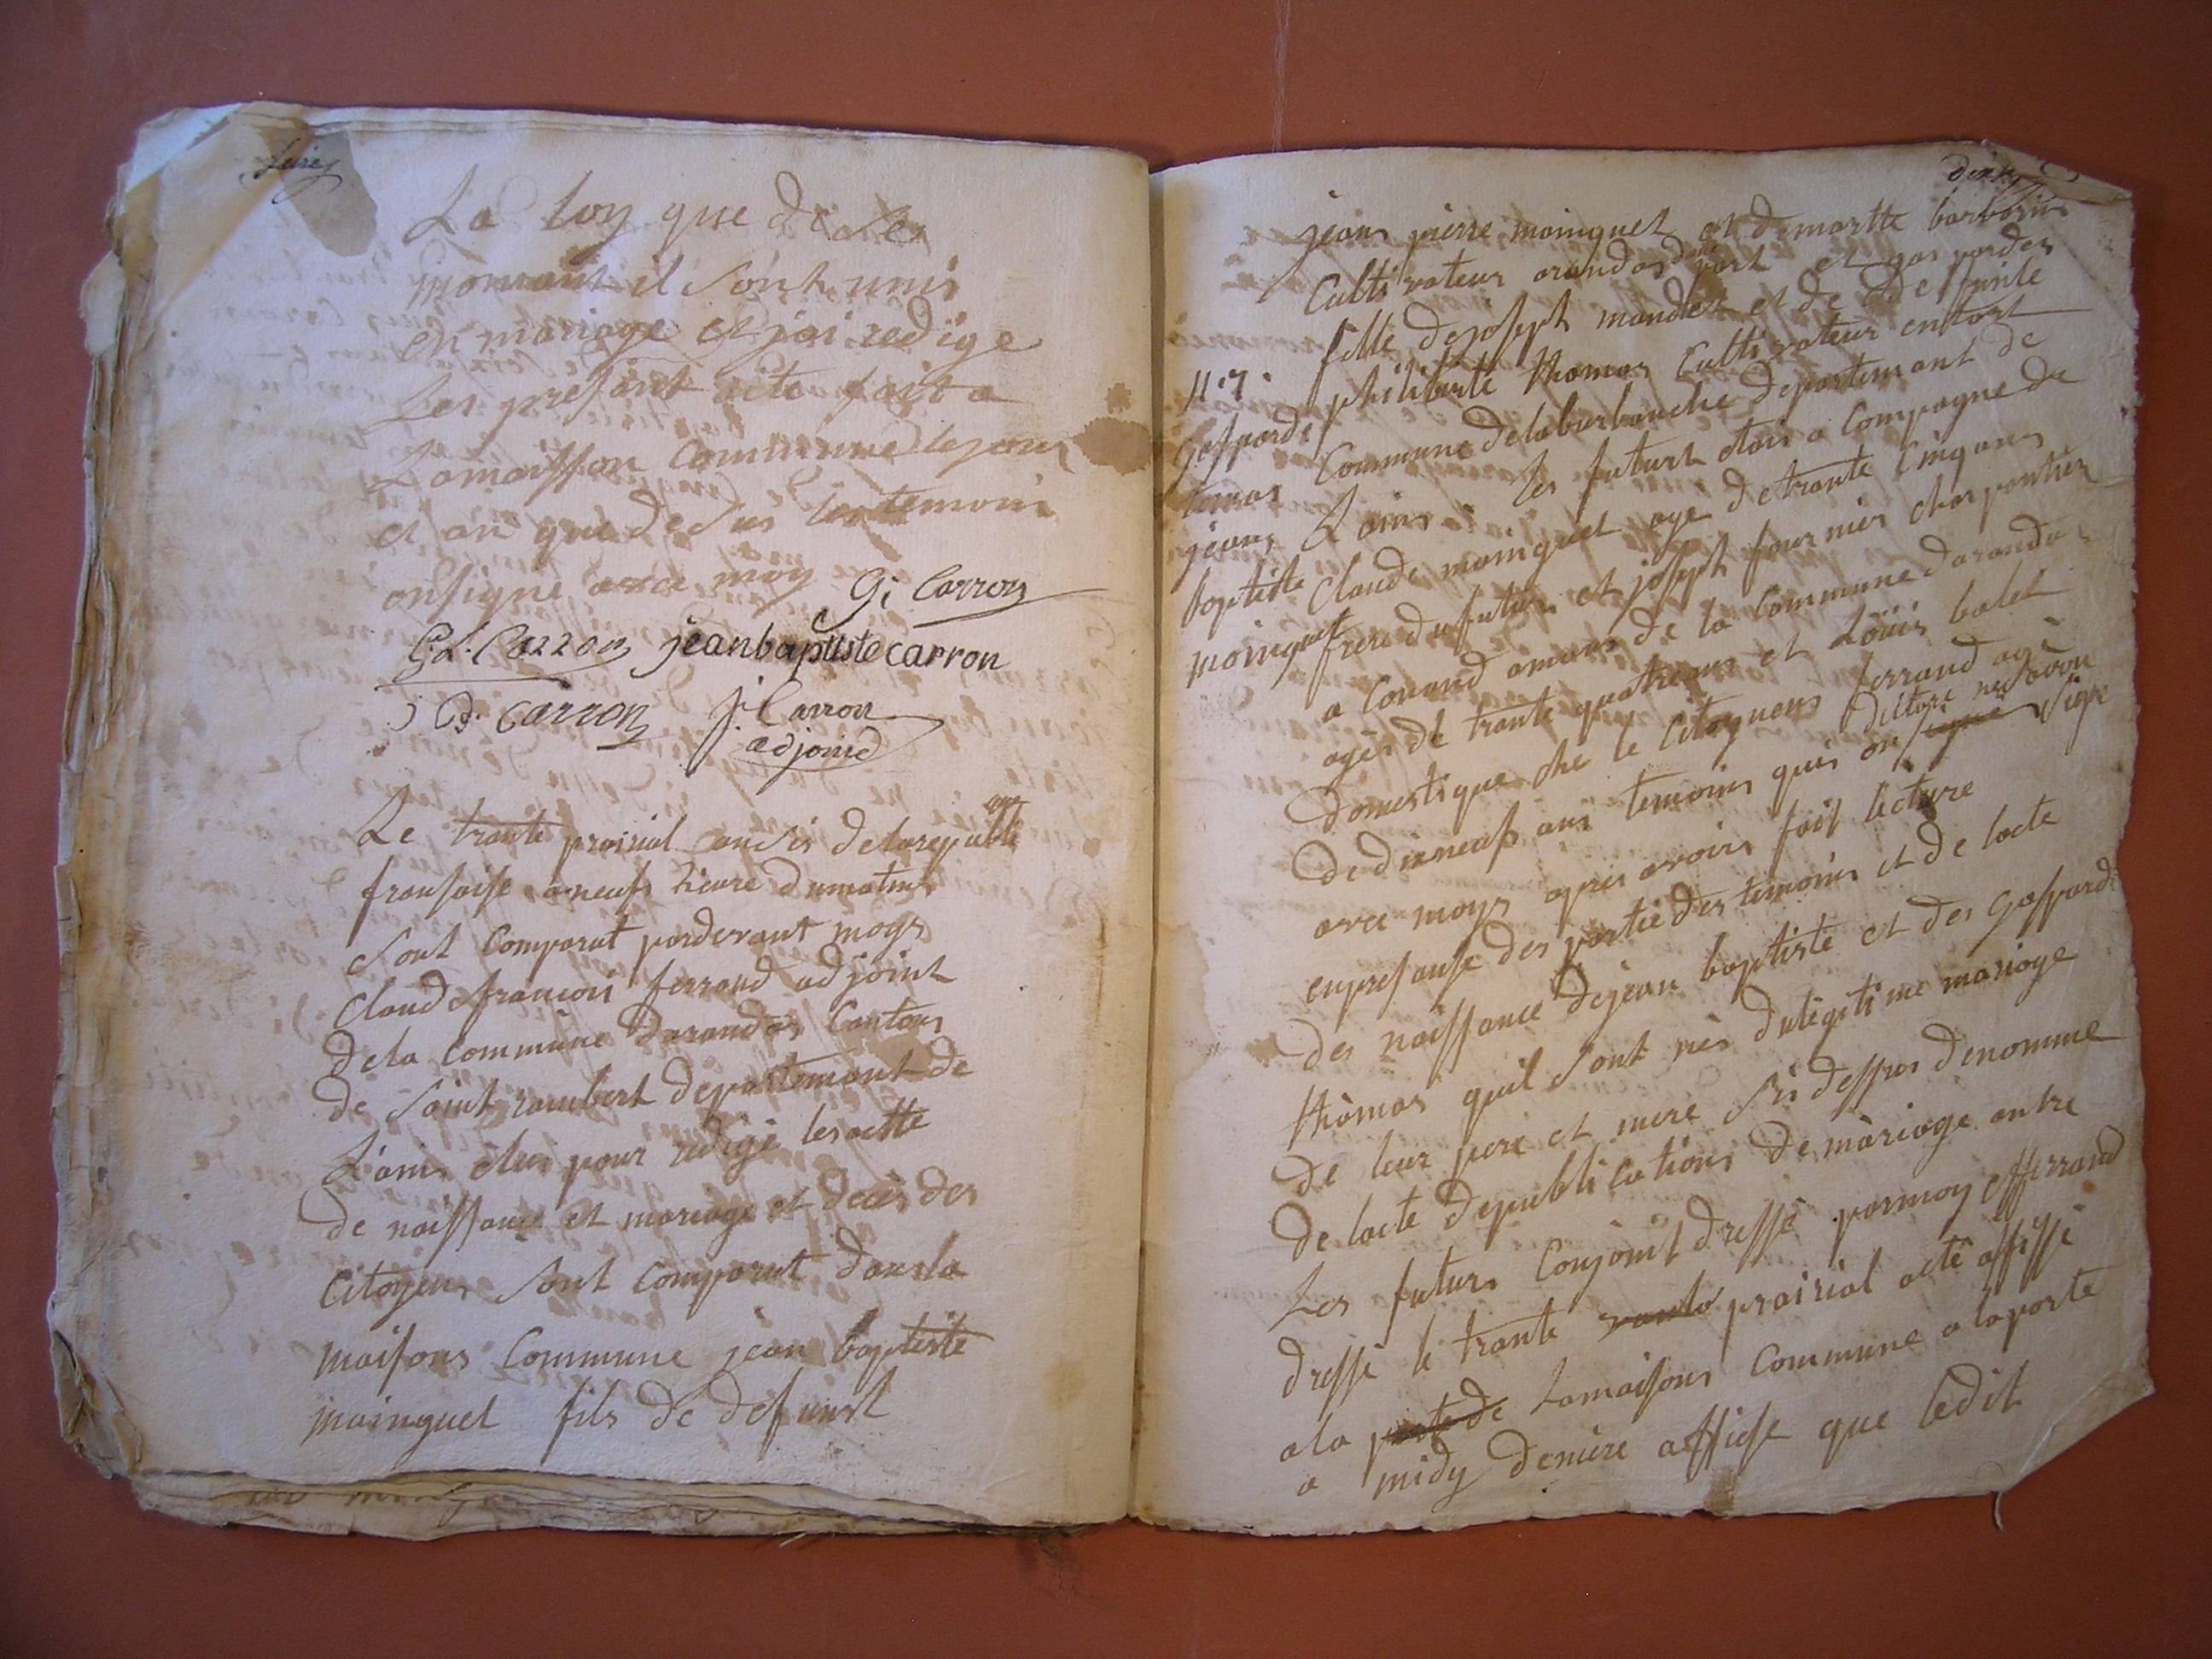 La loy que de se
momant il sont unis
en mariage et jai redige
Les presant acte fait a
Lamaisson Commune lesjour
et an que desus les temoins
onsigne avec moy
G: Carron
G.L. Carron jeanbaptiste carron
J B. Carron J: Carron
adjoind
Le trante prairial an sis delarepubli
que
fransaise aneufs hieure dumatins
sont Comparut pardevant moys
Claude francois ferrand adjoint
dela Commune darandas Cantons
de saint rambert departemant de
Lains elus pour redige les actte
de naissance et mariage et deces des
Citoyens sont Comparut dans la
maisons Commune jean baptiste
mainguet fils de defunct
jeans pierre mainguet et demartte barbarins
Cultivateur arandas dune part et gasparder
fille dejoseph mandet et de defunte
phéliberte thomas Cultivateur enfort
Commune delaburbanche departemant de
Lains. les futurt etois a Compagne de
Claude mainguet age de trante Cinq ans
frere du futur et joseph fournier charpantier
a Conand amans de la Commune darandas
agés de trante quatreans et Loüis balet
domestique che le Citoynens ferrand agé
de dixneufs ans temoins quis on signe
dictore ne savoir sige
avec moys apres avoirs fait lecture
enpresanse des partie des temoins et de lacte
des naissance dejean baptiste et des gasparde
thomas quil sont nés dulégitime mariage
de leur pere et mere sis dessus denomme
de lacte depublications de mariage antre
Les futurs Conjoint dressé parmoy cfferrand
dressé le trante prairial acte affissé
ala porte de Lamaisons Commune alaporte
a midy deniere affiche que ledit
N.° 7.
gasparde
tomas
jeans
baptiste
mainguet